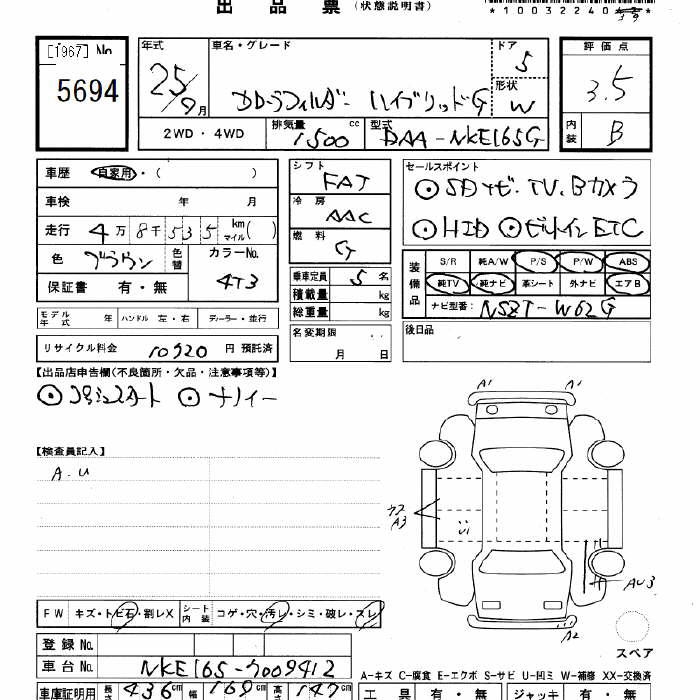 出 品 票 (状態説明書)
*10032240
[1967] No 5694
年式 25/9月
車名・グレード カローラフィルダー ハイブリッドG
ドア 5
形状 W
評価点 3.5
内装 B
2WD・4WD
排気量 1500 cc
型式 DAA-NKE165G
車歴 自家用・( )
車検 年 月
走行 4万8千535 km マイル( )
色 ブラウン 色替 カラーNo. 4T3
保証書 有・無
シフト FAT
冷房 AAC
燃料 G
乗車定員 5名
積載量 kg
総重量 kg
セールスポイント
⊙SDナビ.TV.Bカメラ
⊙HID ⊙ビルトインETC
装備品
S/R 純A/W P/S P/W ABS
純TV 純ナビ 革シート 外ナビ エアB
ナビ型番: NSZT-W62G
モデル年式 年 ハンドル 左・右 ディーラー・並行
名変期限 月 日
後日品
リサイクル料金 10920 円 預託済
【出品店申告欄(不良箇所・欠品・注意事項等)】
⊙プッシュスタート ⊙ナノイー
【検査員記入】
A.U
A1 A1
カナ A3
U1
AU3
A2
スペア
FW キズ・トビ石・割レX シート内装 コゲ・穴・汚レ・シミ・破レ・スレ
登録No.
車台No. NKE165-7009412
A-キズ C-腐食 E-エクボ S-サビ U-凹ミ W-補修 XX-交換済
車庫証明用 長さ 436cm 幅 169cm 高さ 147cm
工具 有・無 ジャッキ 有・無